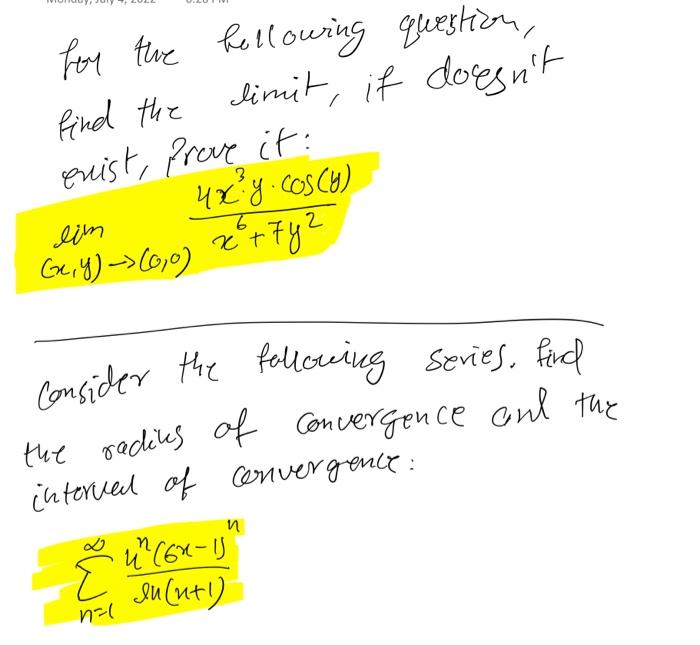 for the following question,
find the limit, if doesn't
exist, Prove it:
lim (x,y)→(0,0) 4x³y·cos(y) / x⁶+7y²
Consider the following series. find
the radius of convergence and the
interval of convergence:
∞ Σ n=1 4ⁿ(6x-1)ⁿ / ln(n+1)